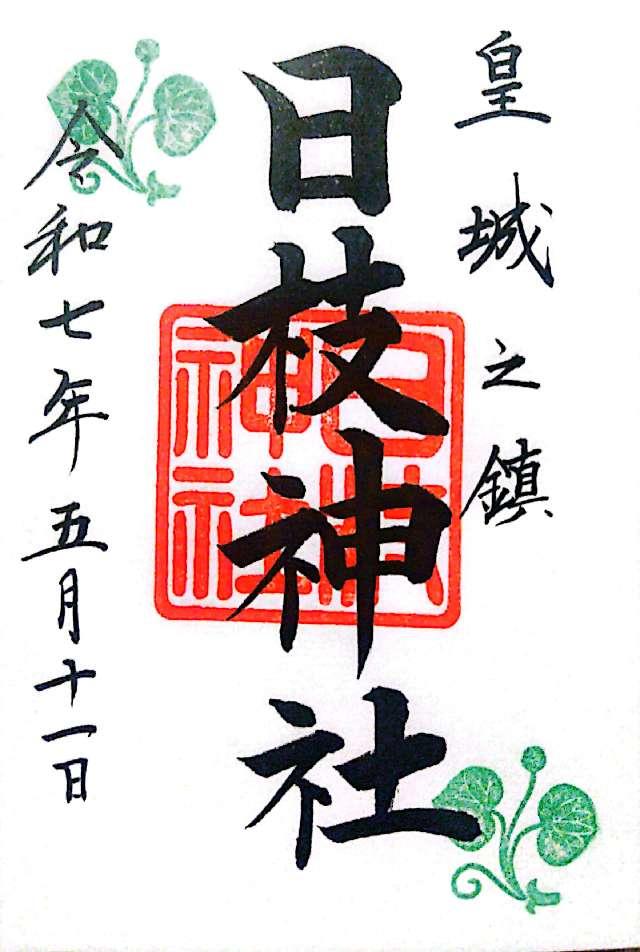 皇城之鎮
日枝神社
日枝神社
令和七年五月十一日